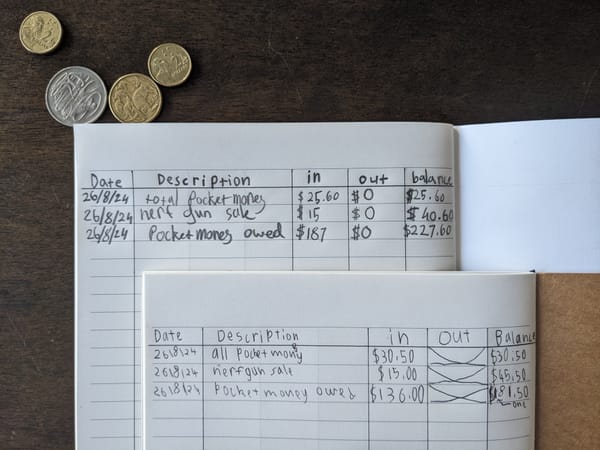 Date Description in out balance
26/8/24 total pocket money $25.60 $0 $25.60
26/8/24 nerf gun sale $15 $0 $40.60
26/8/24 Pocket money owed $187 $0 $227.60
Date Description in Out Balance
26/8/24 all pocket mony $30.50 $30.50
26/8/24 nerf gun sale $15.00 $45.50
26/8/24 Pocket money owed $136.00 $181.50
one